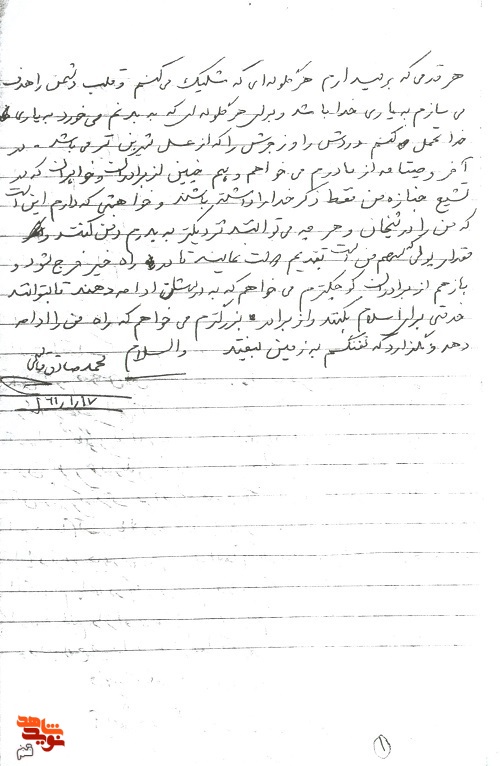 هر قدمی که بر میدارم هر گلوله‌ای که شلیک می‌کنم و قلب دشمن را هدف
می سازم به یاری خدا باشد و برای هر گلوله ای که به بدنم می‌خورد به یاری
خدا تحمل می کنم و دردش را و زجرش را که از عسل شیرین تر می باشد. در
آخر وصیتنامه از مادرم می خواهم و هم چنین از برادران و خواهران که در
تشییع جنازه من فقط ذکر خدا را داشته باشند و خواهشی که دارم این است
که من را در شیخان و هر چه می توانند نزدیکتر به پدرم دفن کنند و
مقدار پولی که من است تقدیم دولت نمایید تا در راه خیر خرج شود و
باز هم از برادران کوچکترم می خواهم که به درسشان ادامه دهند تا بتوانند
خدمتی برای اسلام بکنند و از برادر بزرگترم می خواهم که راه من را ادامه
دهد و نگذارد که تفنگم به زمین بیفتد والسلام محمد صادق
۶۱/۱/۱۷
نوید شاهد
قم
۱